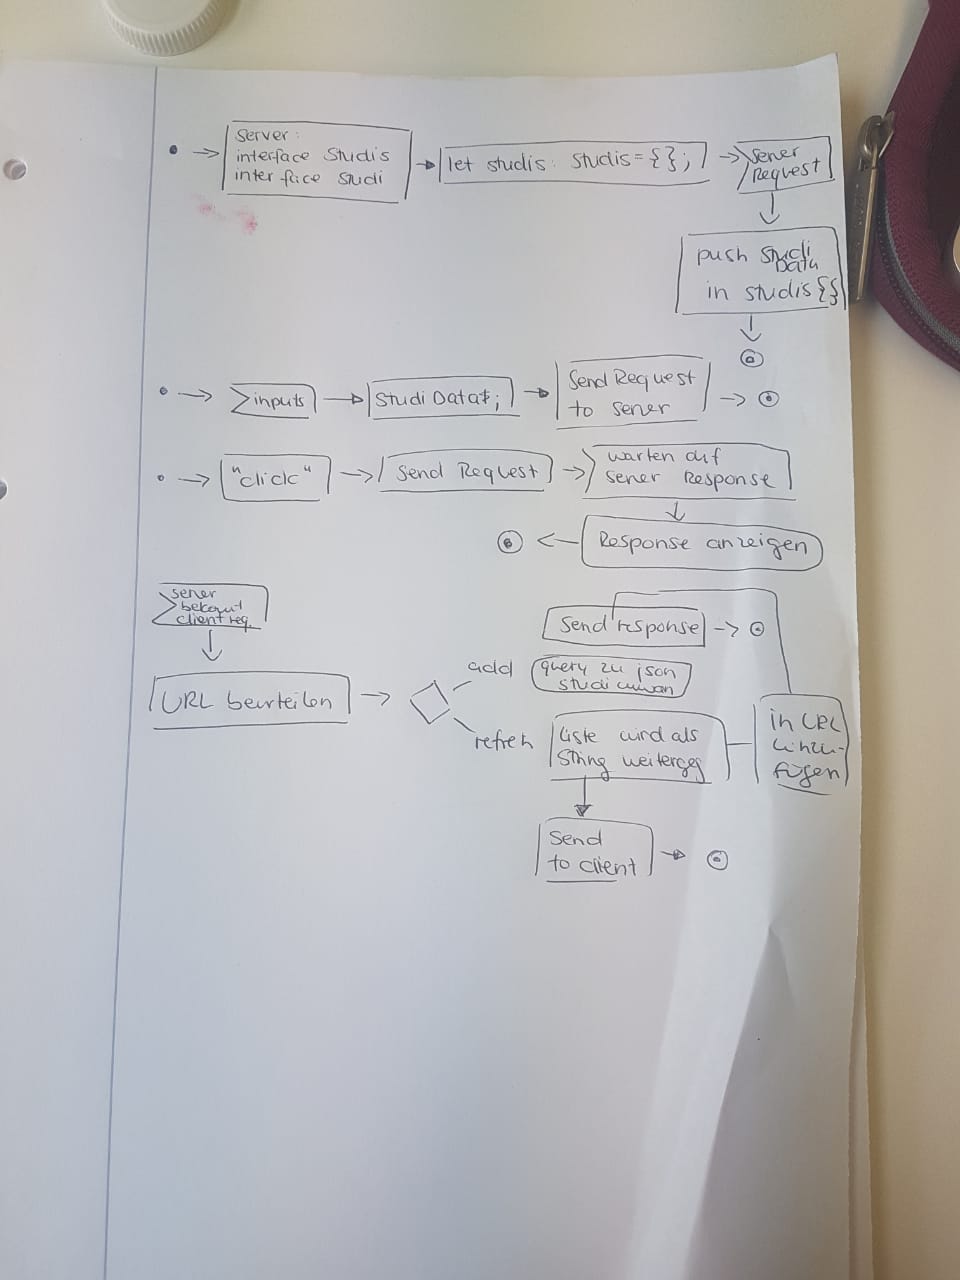 Server:
interface Studis
interface Studi
let studis: Studis = {};
Server
Request
push Studi
Data
in studis {}
inputs
Studi Data;
Send Request
to Server
"click"
Send Request
warten auf
Server Response
Response anzeigen
Server
bekommt
client req.
URL beurteilen
add
refreh
Send response
query zu json
studi
Liste wird als
String weiterges
in URL
hinzu-
fügen
Send
to client